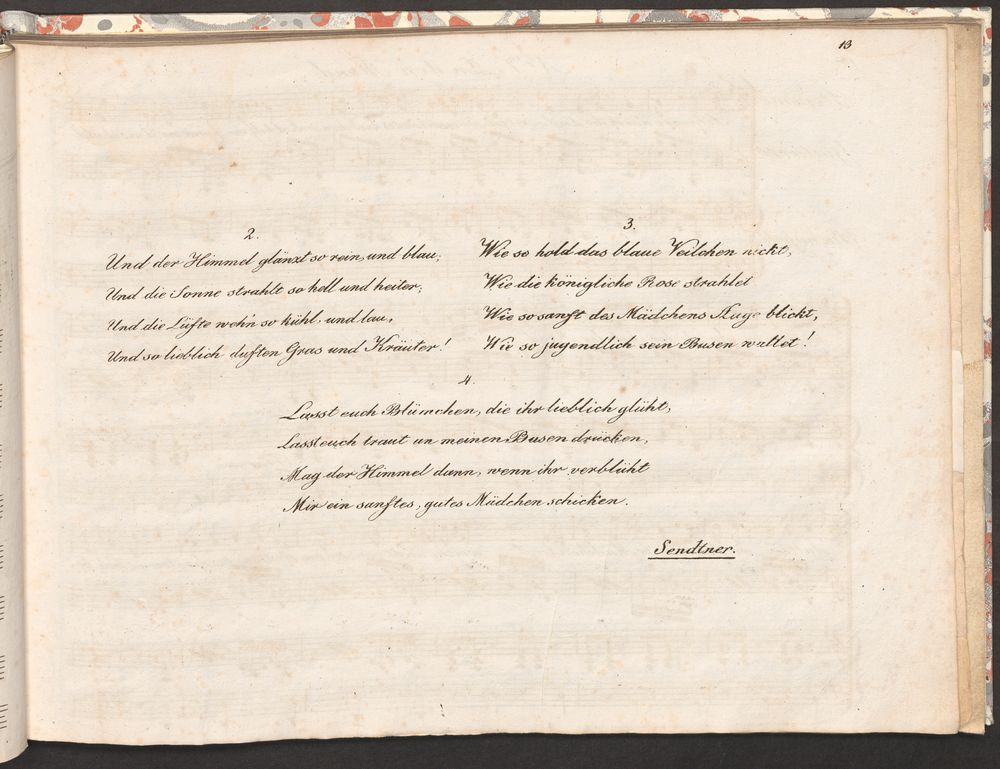 13
2.
Und der Himmel glänzt so rein, und blau;
Und die Sonne strahlt so hell und heiter;
Und die Lüfte weh'n so kühl, und lau,
Und so lieblich duften Gras und Kräuter!
3.
Wie so hold das blaue Veilchen nickt,
Wie die königliche Rose strahlet
Wie so sanft des Mädchens Auge blickt,
Wie so jugendlich sein Busen wallet!
4.
Lasst euch Blümchen, die ihr lieblich glüht,
Lasst euch traut an meinen Busen drücken,
Mag der Himmel dann, wenn ihr verblüht
Mir ein sanftes, gutes Mädchen schicken.
Sendtner.